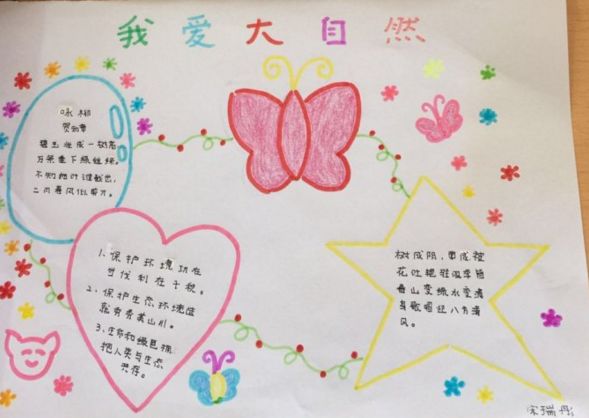 我爱大自然
咏柳
贺知章
碧玉妆成一树高
万条垂下绿丝绦
不知细叶谁裁出,
二月春风似剪刀。
1、保护环境功在
当代利在千秋。
2、保护生态环境
就有秀美山川。
3、生命和绿色拥
把人类与生态
共存。
树成阴,草成
花吐艳
山变绿水变清
身歌唱
风。
宋瑞彤